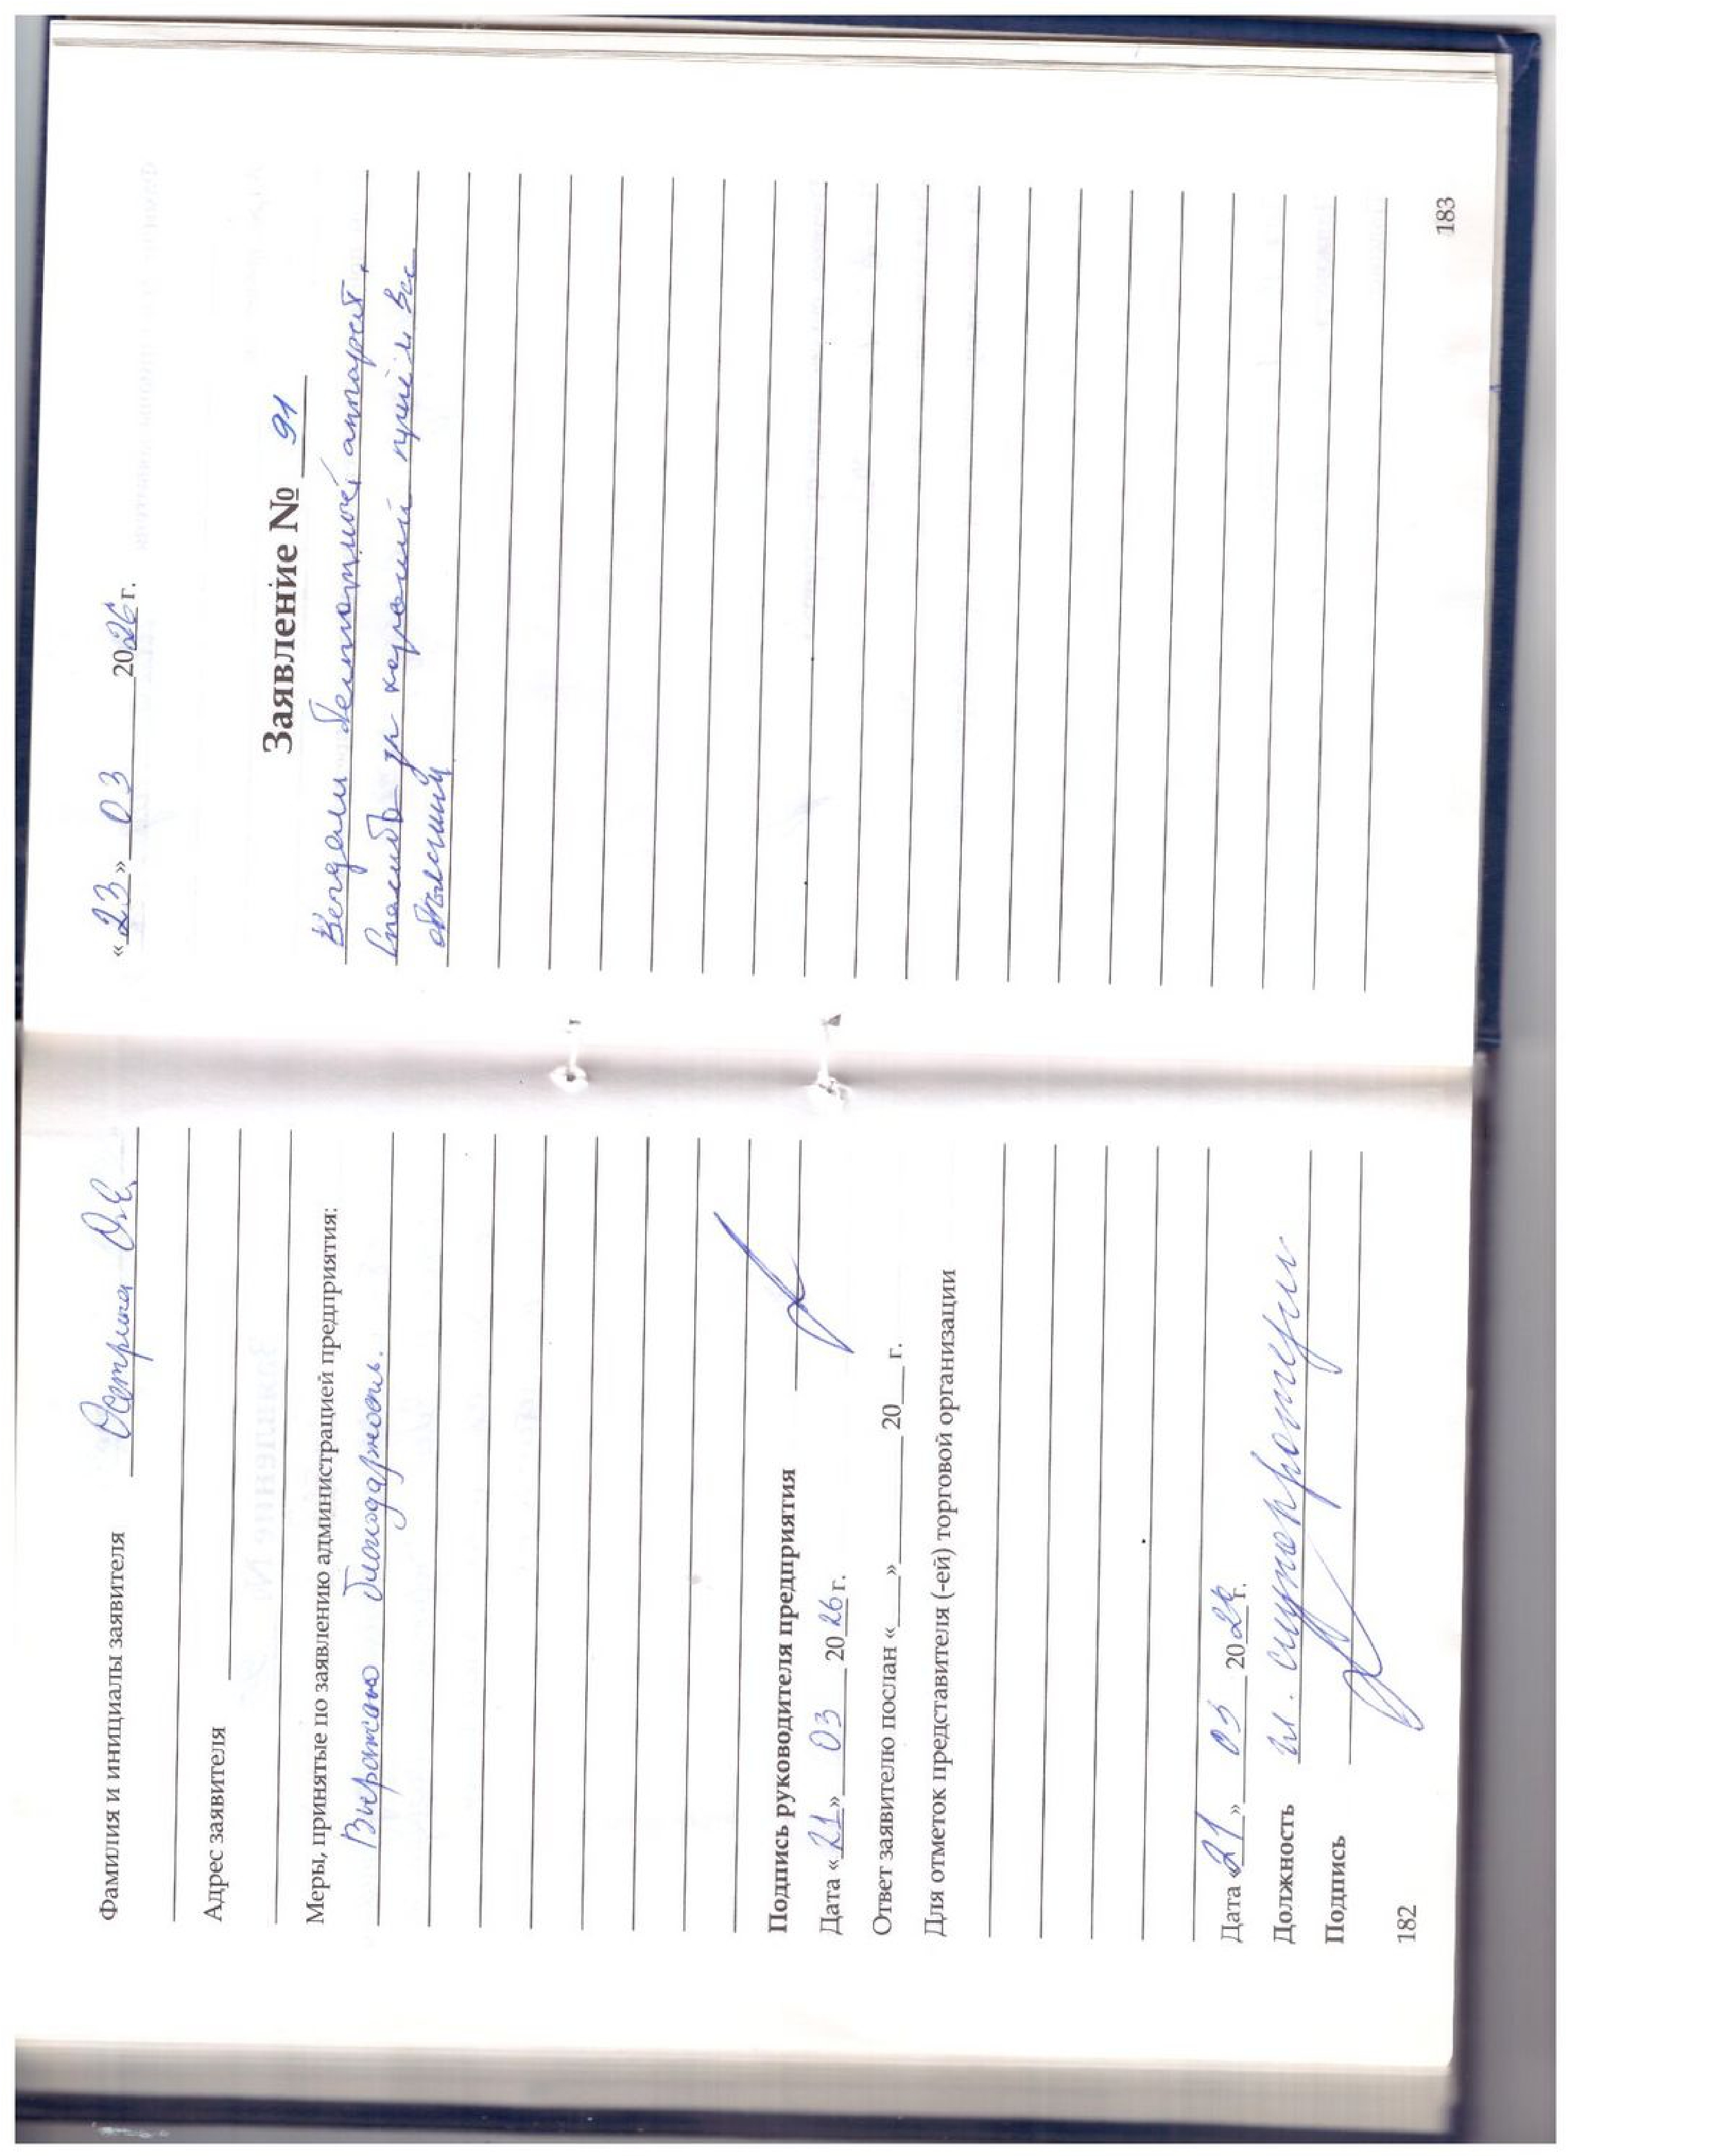 Фамилия и инициалы заявителя Осетрина О.Е.
Адрес заявителя
Меры, принятые по заявлению администрацией предприятия:
Выражаю благодарность.
Подпись руководителя предприятия
Дата «21» 03 2026 г.
Ответ заявителю послан «___» ________ 20___ г.
Для отметок представителя (-ей) торговой организации
Дата «21» 03 2026 г.
Должность
Подпись
182
«23» 03 2026 г.
Заявление № 91
аппарат.
Спасибо за хороший все
183